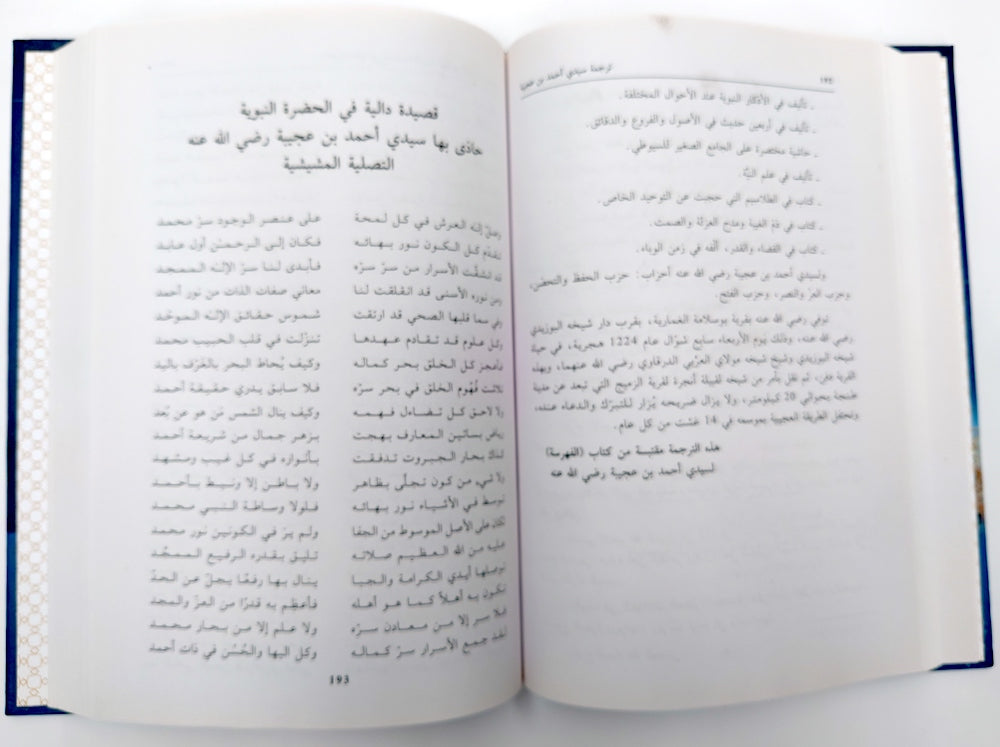 ١٩٢
ترجمة سيدي أحمد بن عجيبة
ـ تأليف في الأذكار النبوية عند الأحوال المختلفة.
ـ تأليف في أربعين حديث في الأصول والفروع والدقائق.
ـ حاشية مختصرة على الجامع الصغير للسيوطي.
ـ تأليف في علم النيَّة.
ـ كتاب في الطلاسيم التي حجبت عن التوحيد الخاص.
ـ كتاب في ذمّ الغيبة ومدح العزلة والصمت.
ـ كتاب في القضاء والقدر، ألّفه في زمن الوباء.
ولسيدي أحمد بن عجيبة رضي الله عنه أحزاب: حزب الحفظ والتحصّن،
وحزب العزّ والنصر، وحزب الفتح.
توفي رضي الله عنه بقرية بوسلامة الغمارية، بقرب دار شيخه البوزيدي
رضي الله عنه، وذلك يوم الأربعاء سابع شوّال عام 1224 هجرية، في حياة
شيخه البوزيدي وشيخ شيخه مولاي العربي الدرقاوي رضي الله عنهما، وبهذه
القرية دفن، ثم نقل بأمر من شيخه لقبيلة أنجرة لقرية الزميج التي تبعد عن مدينة
طنجة بحوالي 20 كيلومتر، ولا يزال ضريحه يُزار للتبرّك والدعاء عنده،
وتحتفل الطريقة العجيبية بموسمه في 14 غشت من كل عام.
هذه الترجمة مقتبسة من كتاب (الفهرسة)
لسيدي أحمد بن عجيبة رضي الله عنه
قصيدة دالية في الحضرة النبوية
حاذى بها سيدي أحمد بن عجيبة رضي الله عنه
التصلية المشيشية
وصلّ إله العرش في كل لمحة على عنصر الوجود سرّ محمد
تقدّم كل الكون نور بهائه فكان إلى الرحمٰن أول عابد
قد انشقّت الأسرار من سرّ سرّه فأبدى لنا سرّ الإلٰه الممجد
ومن نوره الأسنى قد انفلقت لنا معاني صفات الذات من نور أحمد
وفي سما قلبها الصحي قد ارتقت شموس حقائق الإلٰه الموحّد
وكل علوم قد تقادم عهدها تنزّلت في قلب الحبيب محمد
فأعجز كل الخلق بحر كماله وكيف يُحاط البحر بالغَرْف باليد
تلاشت فُهُوم الخلق في بحر سرّه فلا سابق يدري حقيقة أحمد
ولا لاحق كل تضاءل فهمه وكيف ينال الشمس مَن هو عن بُعد
رياض بساتين المعارف بهجت بزهر جمال من شريعة أحمد
لذاك بحار الجبروت تدفقت بأنواره في كل غيب ومشهد
ولا شيء من كون تجلّى بظاهر ولا باطن إلا ونيط بأحمد
توسط في الأشياء نور بهائه فلولا وساطة النبي محمد
لكان على الأصل الموسوط من الخفا ولم يرَ في الكونين نور محمد
عليه من الله العظيم صلاته تليق بقدره الرفيع الممجّد
توصلها أيدي الكرامة والحبا ينال بها رفعًا يجلّ عن الحدّ
تكون به أهلاً كما هو أهله فأعظِم به قدرًا من العزّ والمجد
فلا سر إلا من معادن سرّه ولا علم إلا من بحار محمد
لقد جمع الأسرار سرّ كماله وكل البها والحُسن في ذات أحمد
193